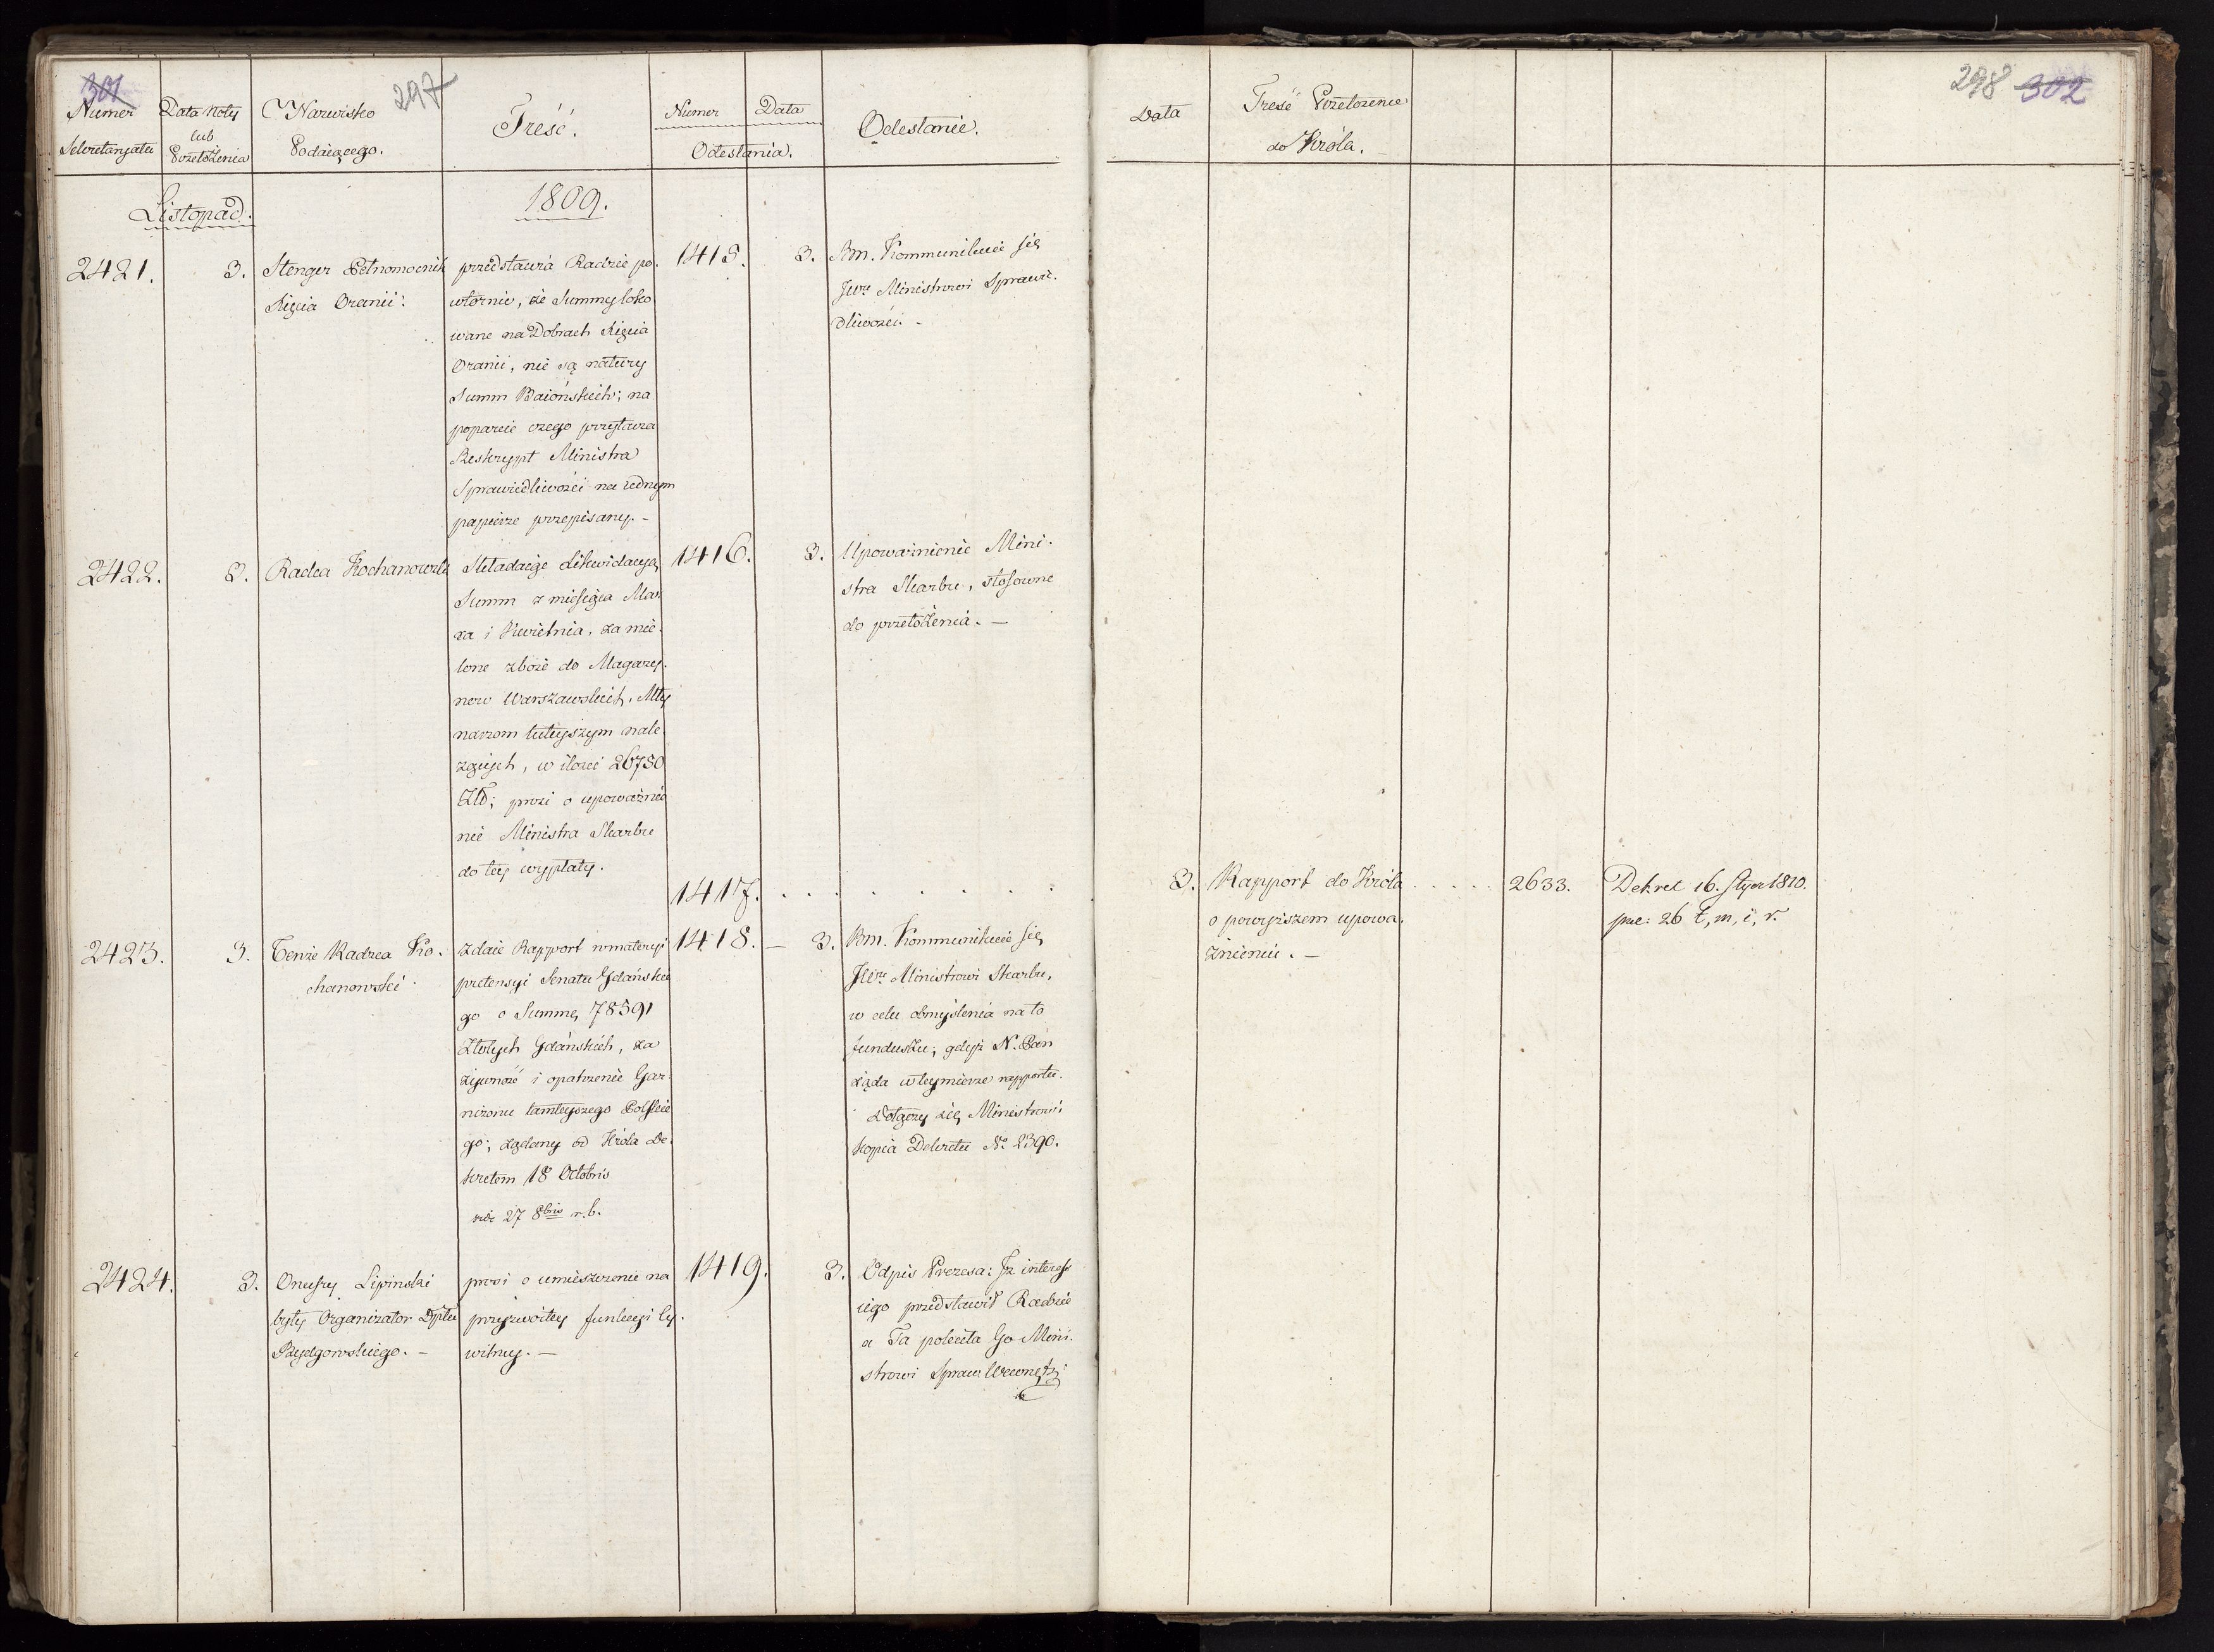 301
297
Numer
Sekretaryatu
Data Noty
lub
Przełożenia
Nazwisko
Podaiącego.
Treść.
Numer
Data
Odesłania.
Odesłanie.
Listopad.
1809.
2421.
3.
Stenger Pełnomocnik
Xięcia Oranii.
przedstawia Radzie po-
wtórnie, że Summy loko
wane na Dobrach Xięcia
Oranii, nie są natury
Summ Baiońskich; na
poparcie czego przystawia
Reskrypt Ministra
Sprawiedliwości na iednym
papierze przepisany. –
1415.
3.
Bm. Kommunikuie się
JWu Ministrowi Sprawie-
dliwości. –
2422.
3.
Radca Kochanowski
Składaiąc Likwidacyą
Summ z miesiąca Mar
ca i Kwietnia, za mie-
lone zboże do Magazy-
now Warszawskich, Mły
narzom tuteyszym nale
żących, w ilości 26750
Złł; prosi o upoważnie
nie Ministra Skarbu
do tey wypłaty.
1416.
3.
Upoważnienie Mini-
stra Skarbu, stosowne
do przełożenia. –
1417. . . . . . . . .
2423.
3.
Tenże Radca Ko-
chanowski
zdaie Rapport w materyi
pretensyi Senatu Gdańskie
go o Summę 78591
Złotych Gdańskich, za
żywność i opatrzenie Gar-
nizonu tamteyszego Polskie
go; żądany od Króla De-
kretem 18 Octobris
vide 27 8bris r.b.
1418. –
3.
Bm. Kommunikuie się
JWu Ministrowi Skarbu,
w celu obmyślenia na to
funduszu; gdyż N. Pan
żąda w teymierze rapportu.
Dołączy się Ministrowi
kopia Dekretu No 2390.
2424.
3.
Onufry Lipinski
były Organizator Dptu
Bydgowskiego. –
prosi o umieszczenie na
przyzwoitey funkcyi Cy-
wilney. –
1419.
3.
Odpis Prezesa: Iż interess
iego przedstawił Radzie
a Ta poleciła Go Mini-
strowi Spraw Wewnętrz:
298 302
Data
Treść Przełożenia
do Króla.
3.
Rapport do Króla . . . . .
o powyższem upowa-
żnieniu. –
2633.
Dekret 16. Stycz 1810.
26 t, m, i, r.